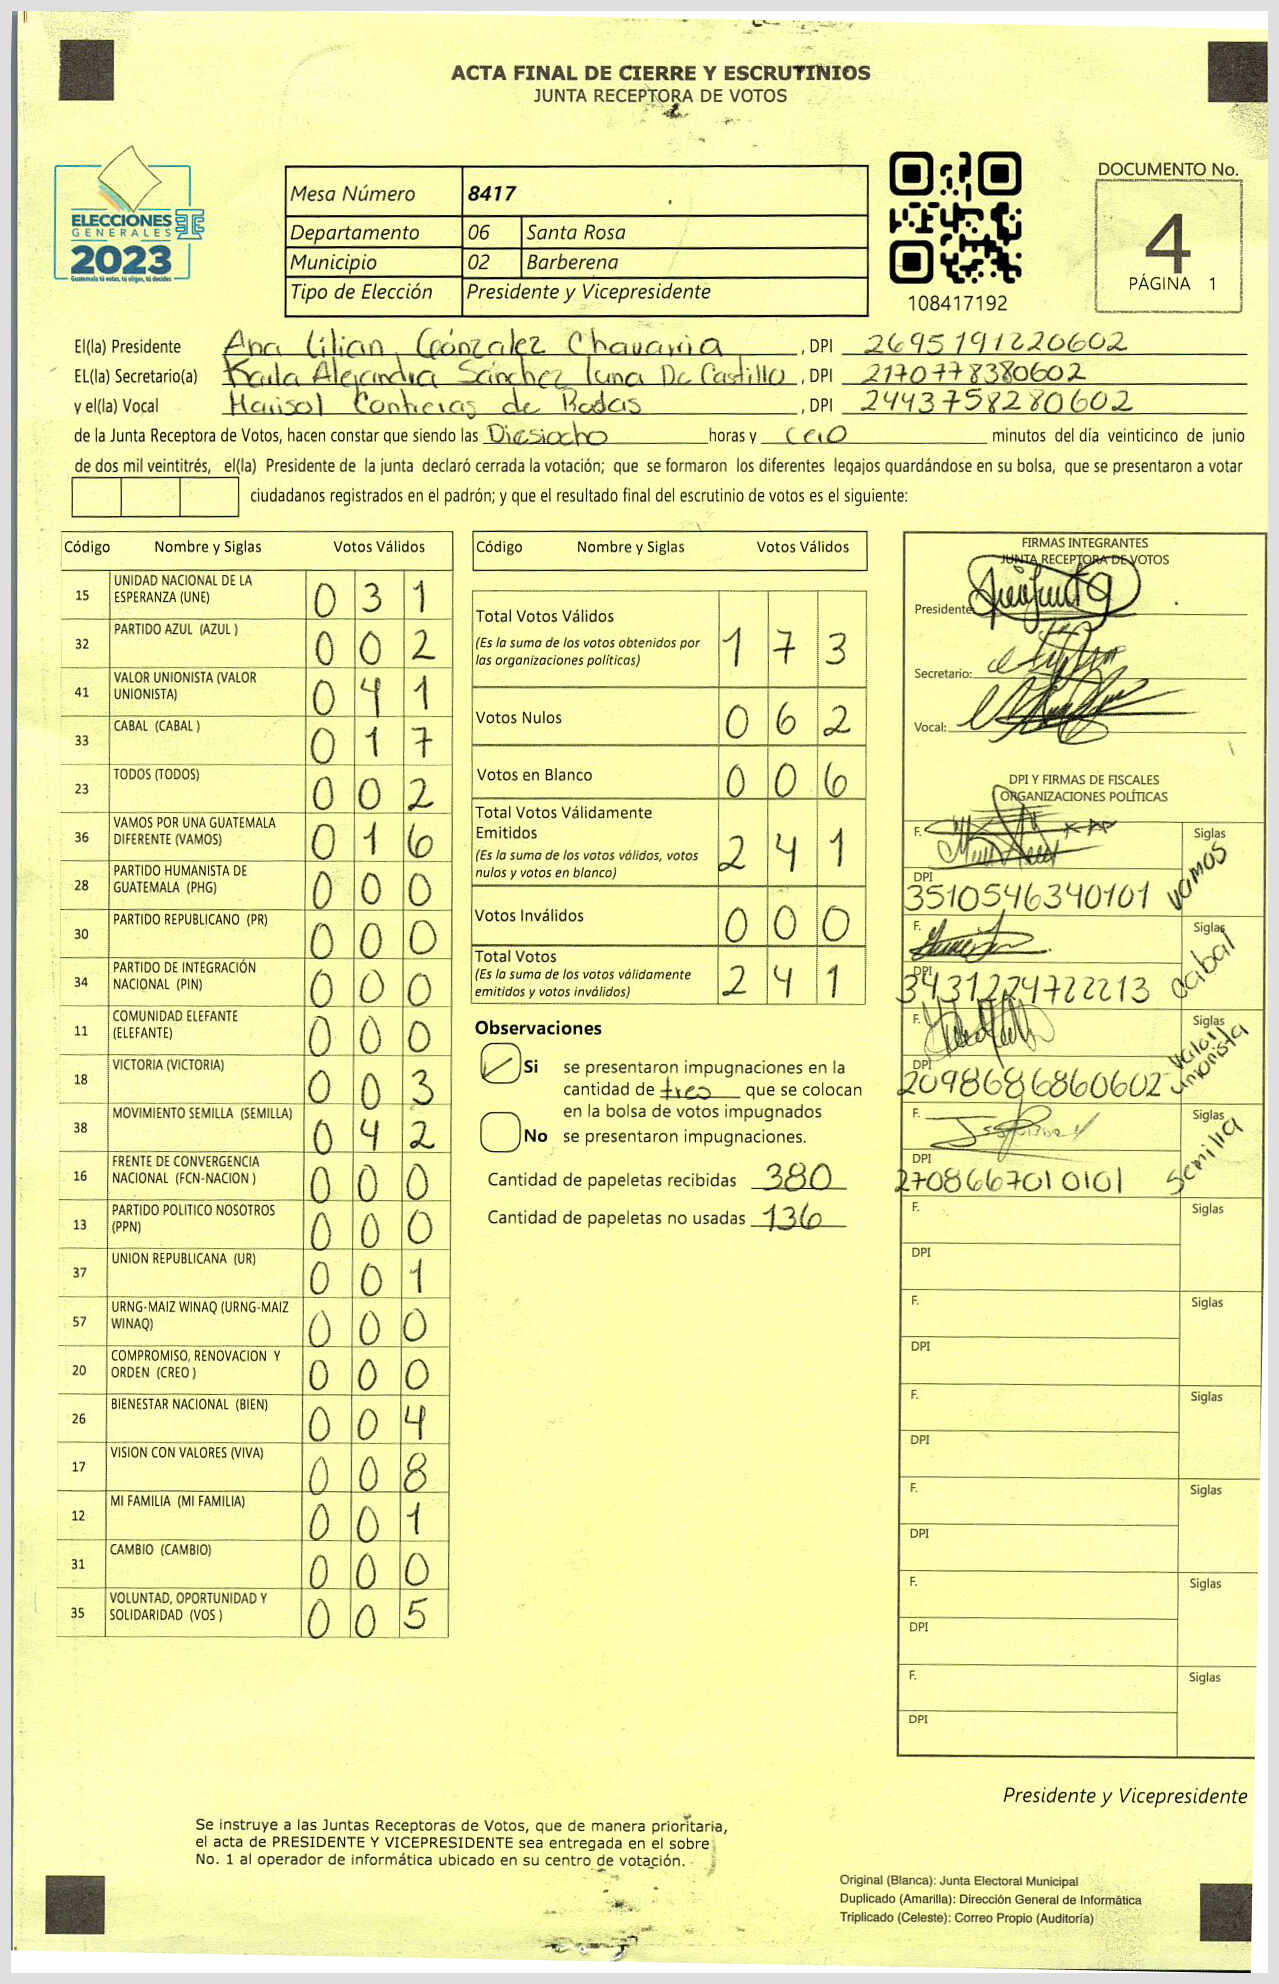 ACTA FINAL DE CIERRE Y ESCRUTINIOS
JUNTA RECEPTORA DE VOTOS
ELECCIONES
GENERALES
2023
Guatemala tú votas, tú eliges, tú decides
Mesa Número 8417
Departamento 06 Santa Rosa
Municipio 02 Barberena
Tipo de Elección Presidente y Vicepresidente
108417192
DOCUMENTO No.
4
PÁGINA 1
El(la) Presidente Ana Lilian Gónzalez Chavarria , DPI 2695191220602
EL(la) Secretario(a) Karla Alejandra Sánchez Luna De Castillo , DPI 2170778380602
y el(la) Vocal Marisol Contreras de Rodas , DPI 2443758280602
de la Junta Receptora de Votos, hacen constar que siendo las Diesiocho horas y cero minutos del día veinticinco de junio
de dos mil veintitrés, el(la) Presidente de la junta declaró cerrada la votación; que se formaron los diferentes legajos guardándose en su bolsa, que se presentaron a votar
ciudadanos registrados en el padrón; y que el resultado final del escrutinio de votos es el siguiente:
Código Nombre y Siglas Votos Válidos
15 UNIDAD NACIONAL DE LA ESPERANZA (UNE) 0 3 1
32 PARTIDO AZUL (AZUL ) 0 0 2
41 VALOR UNIONISTA (VALOR UNIONISTA) 0 4 1
33 CABAL (CABAL ) 0 1 7
23 TODOS (TODOS) 0 0 2
36 VAMOS POR UNA GUATEMALA DIFERENTE (VAMOS) 0 1 6
28 PARTIDO HUMANISTA DE GUATEMALA (PHG) 0 0 0
30 PARTIDO REPUBLICANO (PR) 0 0 0
34 PARTIDO DE INTEGRACIÓN NACIONAL (PIN) 0 0 0
11 COMUNIDAD ELEFANTE (ELEFANTE) 0 0 0
18 VICTORIA (VICTORIA) 0 0 3
38 MOVIMIENTO SEMILLA (SEMILLA) 0 4 2
16 FRENTE DE CONVERGENCIA NACIONAL (FCN-NACION ) 0 0 0
13 PARTIDO POLITICO NOSOTROS (PPN) 0 0 0
37 UNION REPUBLICANA (UR) 0 0 1
57 URNG-MAIZ WINAQ (URNG-MAIZ WINAQ) 0 0 0
20 COMPROMISO, RENOVACION Y ORDEN (CREO ) 0 0 0
26 BIENESTAR NACIONAL (BIEN) 0 0 4
17 VISION CON VALORES (VIVA) 0 0 8
12 MI FAMILIA (MI FAMILIA) 0 0 1
31 CAMBIO (CAMBIO) 0 0 0
35 VOLUNTAD, OPORTUNIDAD Y SOLIDARIDAD (VOS ) 0 0 5
Código Nombre y Siglas Votos Válidos
Total Votos Válidos 1 7 3
(Es la suma de los votos obtenidos por
las organizaciones políticas)
Votos Nulos 0 6 2
Votos en Blanco 0 0 6
Total Votos Válidamente
Emitidos 2 4 1
(Es la suma de los votos válidos, votos
nulos y votos en blanco)
Votos Inválidos 0 0 0
Total Votos 2 4 1
(Es la suma de los votos válidamente
emitidos y votos inválidos)
Observaciones
Si se presentaron impugnaciones en la
cantidad de tres que se colocan
en la bolsa de votos impugnados
No se presentaron impugnaciones.
Cantidad de papeletas recibidas 380
Cantidad de papeletas no usadas 136
FIRMAS INTEGRANTES
JUNTA RECEPTORA DE VOTOS
Presidente:
Secretario:
Vocal:
DPI Y FIRMAS DE FISCALES
ORGANIZACIONES POLÍTICAS
F. Siglas
DPI
3510546340101 vamos
F. Siglas
DPI
3431224722213 cabal
F. Siglas
DPI
2098686860602 valor unionista
F. Siglas
DPI
2708667010101 semilla
F. Siglas
DPI
F. Siglas
DPI
F. Siglas
DPI
F. Siglas
DPI
F. Siglas
DPI
F. Siglas
DPI
Presidente y Vicepresidente
Se instruye a las Juntas Receptoras de Votos, que de manera prioritaria,
el acta de PRESIDENTE Y VICEPRESIDENTE sea entregada en el sobre
No. 1 al operador de informática ubicado en su centro de votación.
Original (Blanca): Junta Electoral Municipal
Duplicado (Amarilla): Dirección General de Informática
Triplicado (Celeste): Correo Propio (Auditoría)